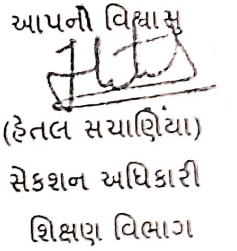 આપનો વિશ્વાસુ
(હેતલ સચાણિયા)
સેકશન અધિકારી
શિક્ષણ વિભાગ